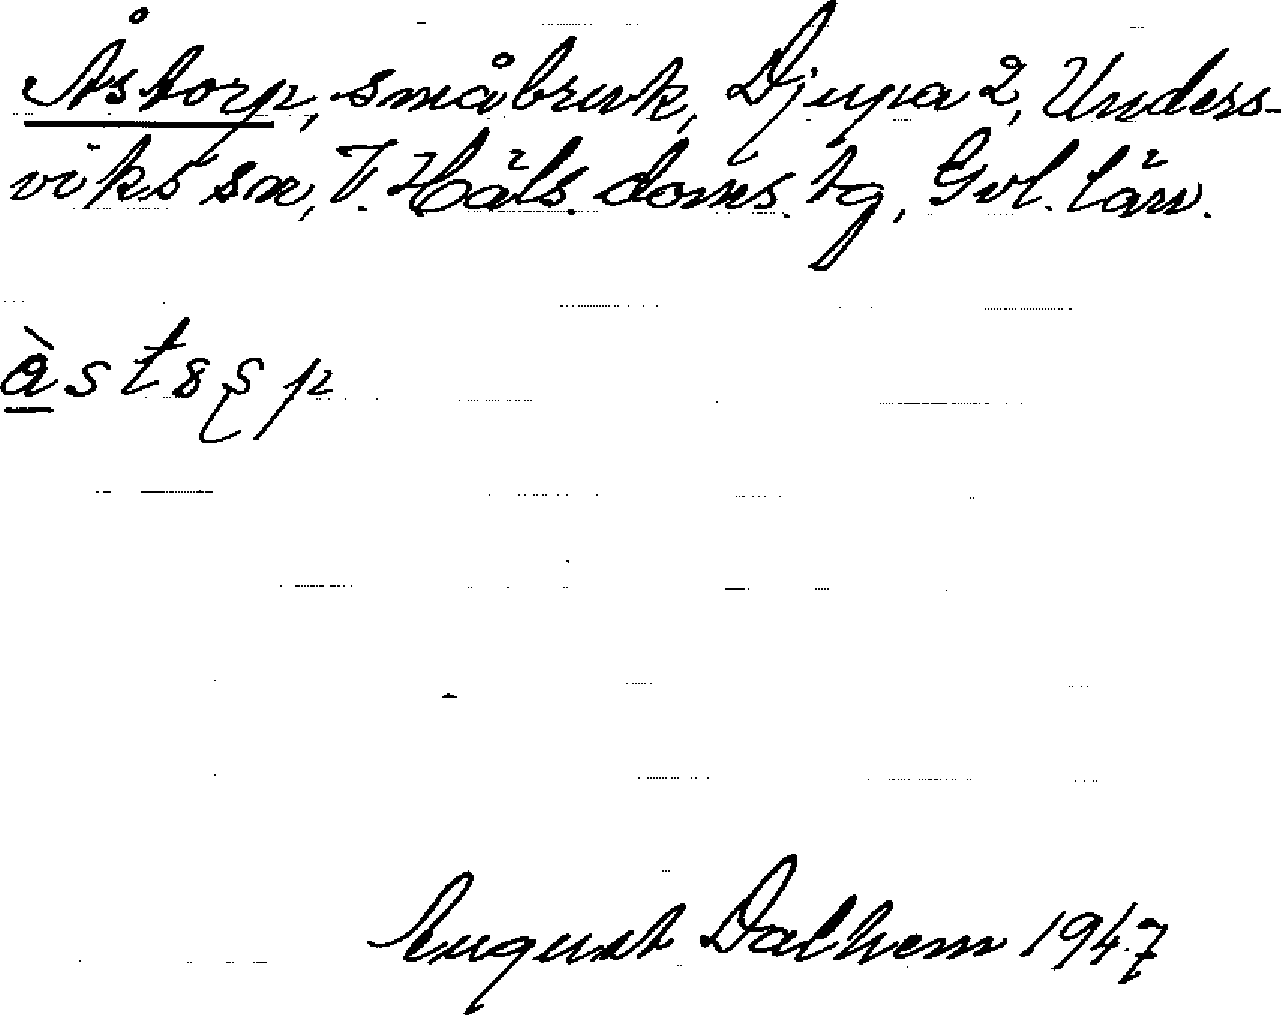 Åstorp, småbruk, Djupa 2, Unders-
viks sn, V. Häls. doms. tg, Gvl. län.
àstss̨p
August Dalhem 1947